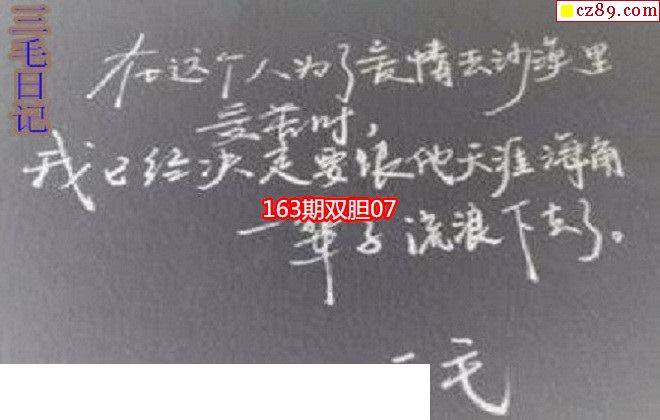 cz89.com
三毛日记
在这个人为了爱情去沙漠里
受苦时,
我已经决定要跟他天涯海角
163期双胆07
一辈子流浪下去了。
毛